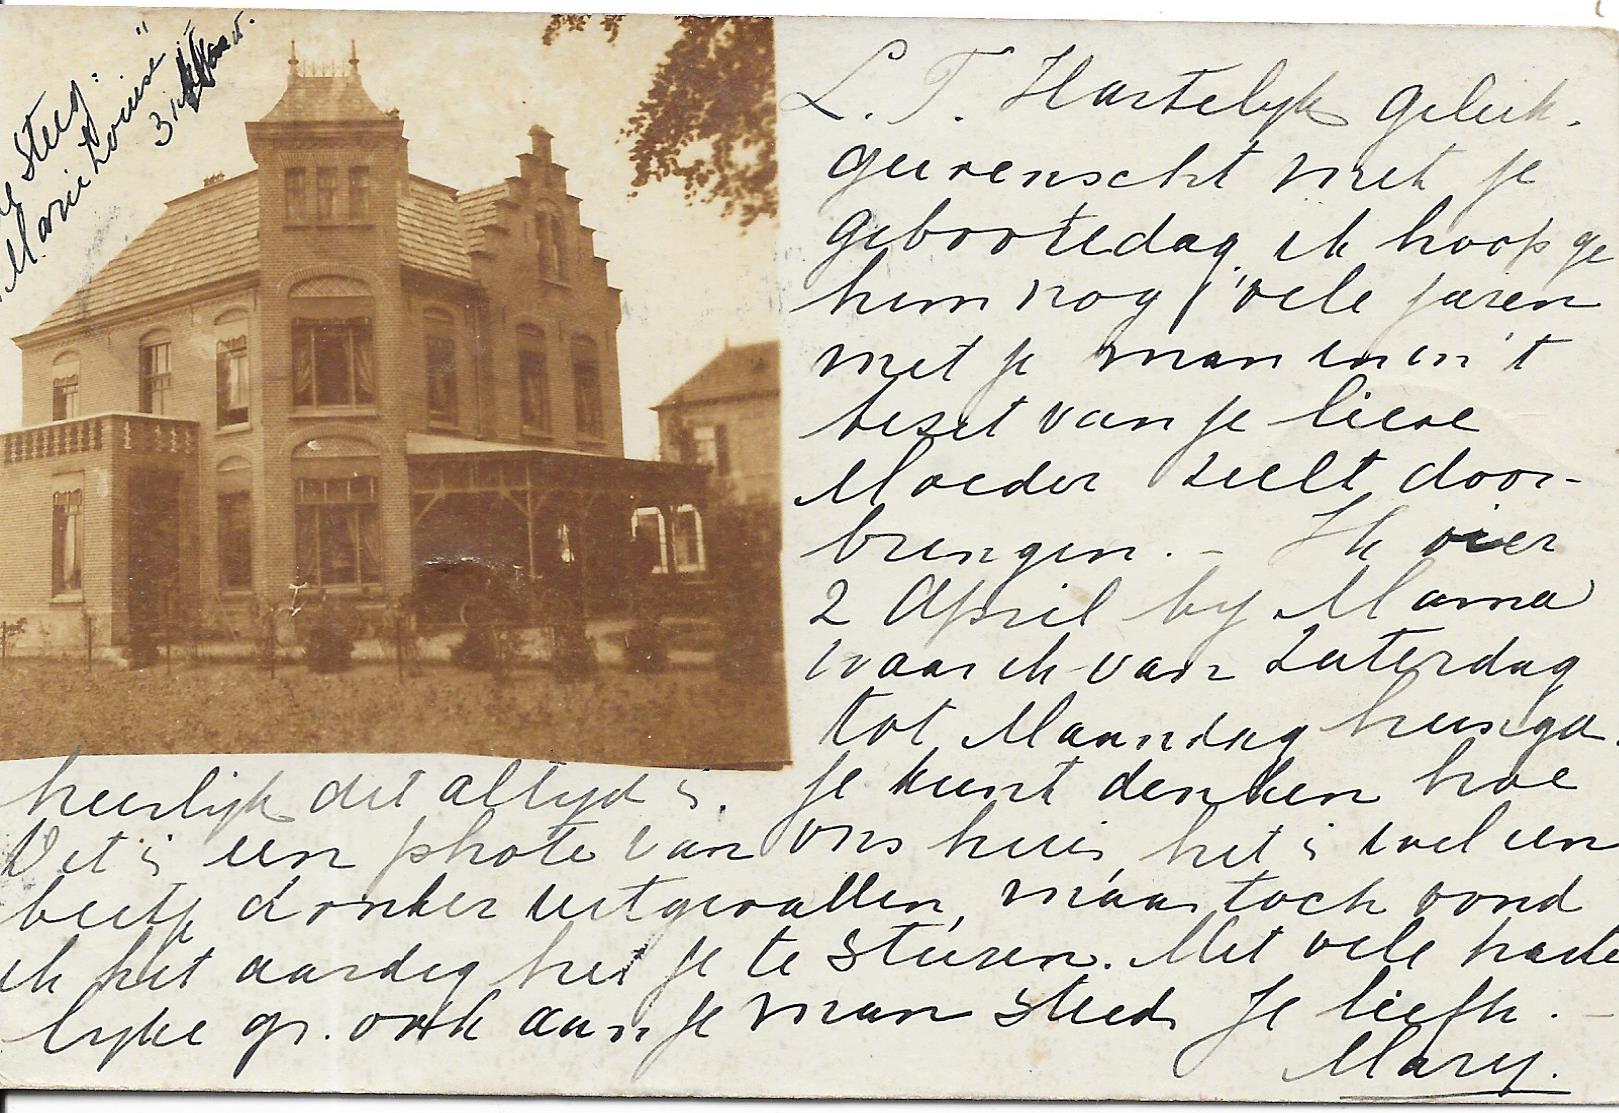 De Steeg:
"Marie Louise"
3
L. T. Hartelijk geluk-
gewenscht met je
geboortedag, ik hoop je
hem nog vele jaren
met je man en in 't
bezit van je lieve
Moeder zult door-
brengen. - Ik vier
2 April bij Mama
waar ik van Zaterdag
tot Maandag heenga.
Je kunt denken hoe
heerlijk dit altijd is.
Dit is een photo van ons huis, het is wel een
beetje donker uitgevallen, maar toch vond
ik het aardig het je te sturen. Met vele harte
lijke gr. ook aan je man steeds je liefh. -
Mary.